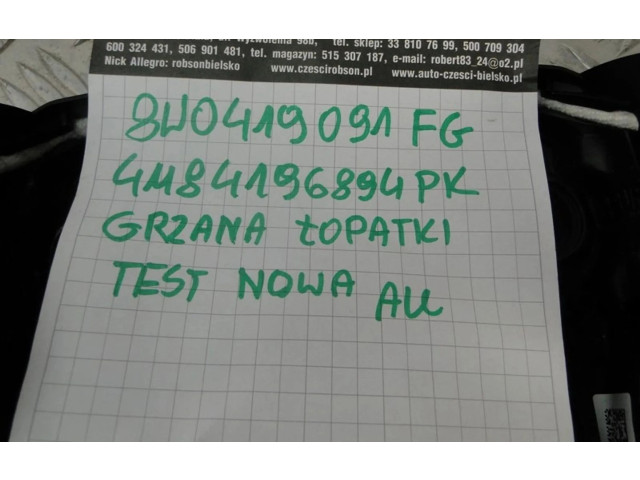 Wyzwolenia 98b, tel. sklep: 33 810 76 99, 500 709 304
600 324 431, 506 901 481, tel. magazyn: 515 307 187, e-mail: robert83_24@o2.pl
Nick Allegro: robsonbielsko www.czescirobson.pl www.auto-czesci-bielsko.pl
8W0419091 FG
4M8419689 4PK
GRZANA ŁOPATKI
TEST NOWA AU